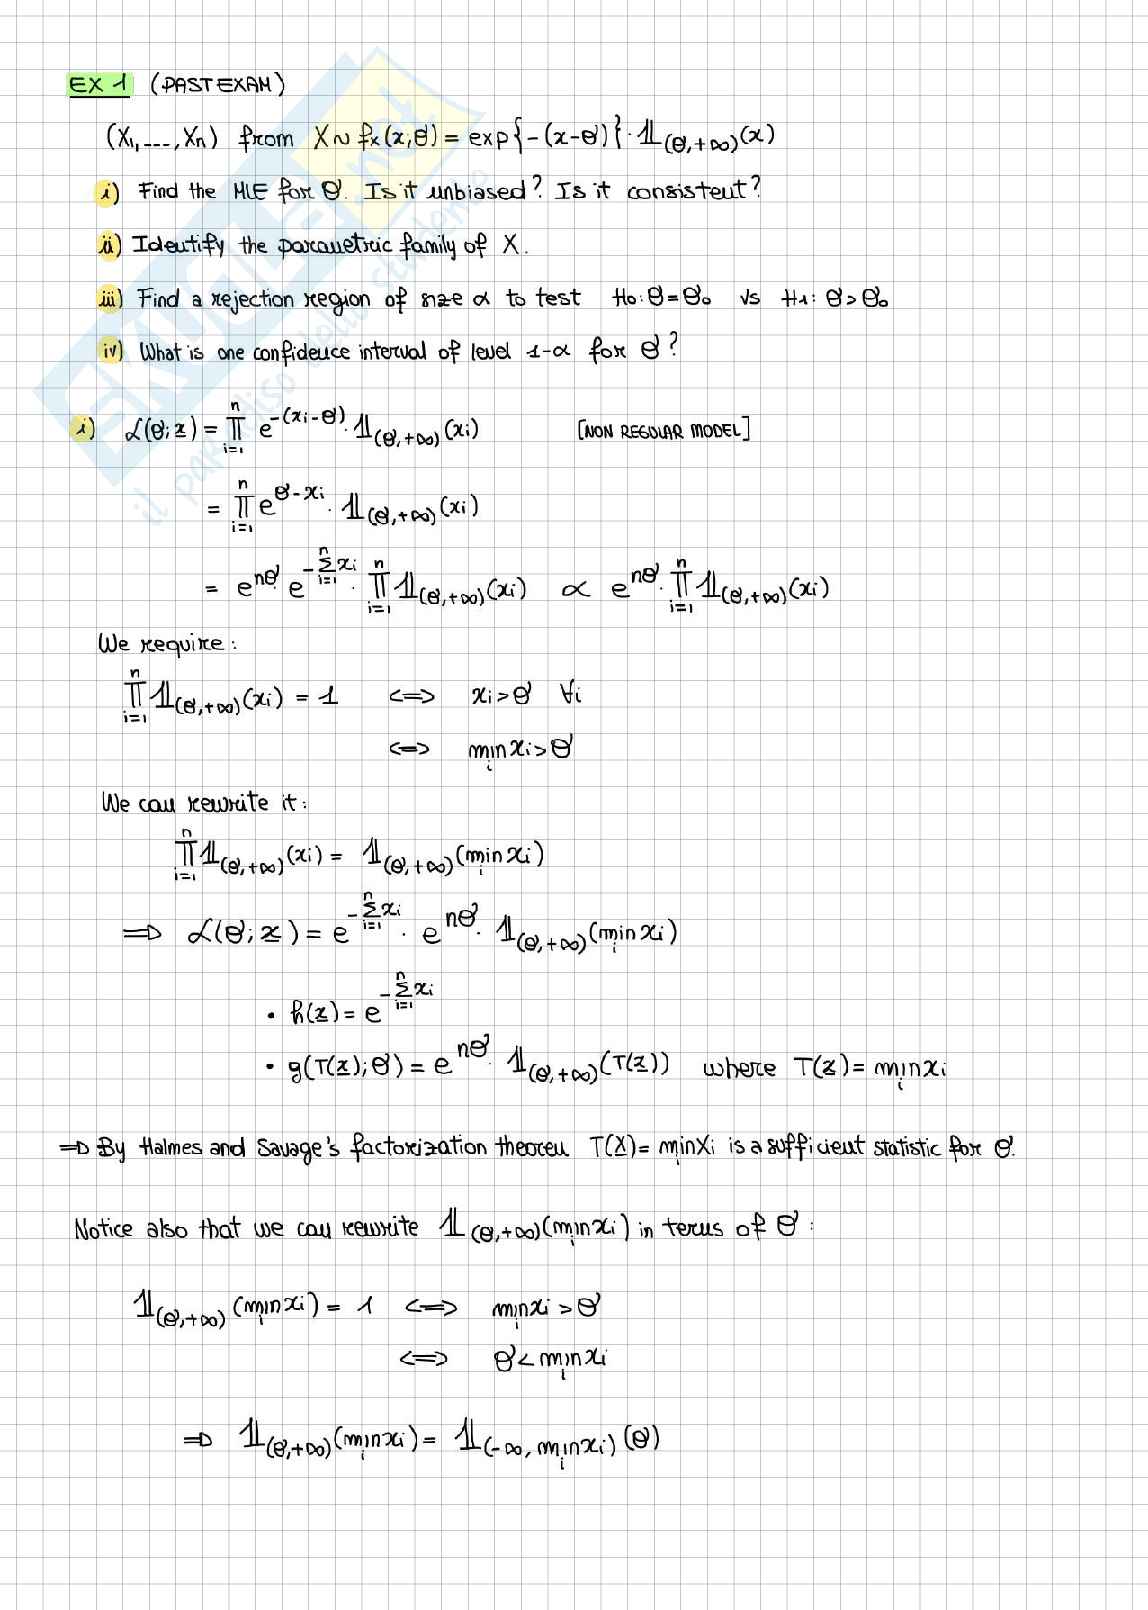 EX 1 (PAST EXAM)
(X₁, ---, Xn) from X ~ fx(x;θ) = exp{-(x-θ)}·𝟙(θ,+∞)(x)
i) Find the MLE for θ. Is it unbiased? Is it consistent?
ii) Identify the parametric family of X.
iii) Find a rejection region of size α to test H₀: θ=θ₀ vs H₁: θ>θ₀
iv) What is one confidence interval of level 1-α for θ?
i) ℒ(θ;x) = ∏ᵢ₌₁ⁿ e^-(xi-θ)·𝟙(θ,+∞)(xi) [NON REGULAR MODEL]
= ∏ᵢ₌₁ⁿ e^θ-xi·𝟙(θ,+∞)(xi)
= e^nθ e^-∑ᵢ₌₁ⁿxi·∏ᵢ₌₁ⁿ𝟙(θ,+∞)(xi) ∝ e^nθ·∏ᵢ₌₁ⁿ𝟙(θ,+∞)(xi)
We require:
∏ᵢ₌₁ⁿ𝟙(θ,+∞)(xi) = 1 <=> xi>θ ∀i
<=> min xi>θ
i
We can rewrite it:
∏ᵢ₌₁ⁿ𝟙(θ,+∞)(xi) = 𝟙(θ,+∞)(min xi)
i
=> ℒ(θ;x) = e^-∑ᵢ₌₁ⁿxi·e^nθ·𝟙(θ,+∞)(min xi)
i
• h(x) = e^-∑ᵢ₌₁ⁿxi
• g(T(x);θ) = e^nθ·𝟙(θ,+∞)(T(x)) where T(x) = min xi
i
=> By Halmes and Savage's factorization theorem T(X) = min Xi is a sufficient statistic for θ.
i
Notice also that we can rewrite 𝟙(θ,+∞)(min xi) in terms of θ:
i
𝟙(θ,+∞)(min xi) = 1 <=> min xi > θ
i i
<=> θ < min xi
i
=> 𝟙(θ,+∞)(min xi) = 𝟙(-∞, min xi)(θ)
i i
SKUOLA.net
il paradiso dello studente